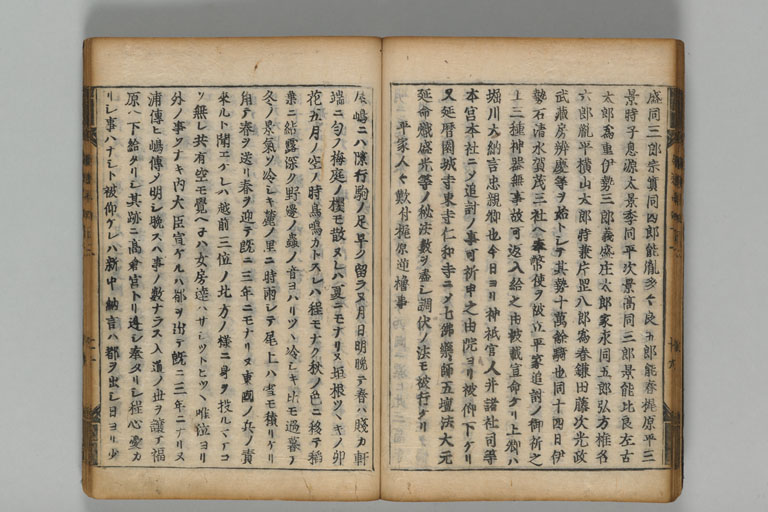 盛同三郎宗實同四郎能胤多々良五郎能春梶原平三
景時子息源太景季同平次景高同三郎景能比良左古
太郎爲重伊勢三郎義盛庄太郎家永同五郎弘方椎名
六郎胤平横山太郎時兼片罡八郎爲春鎌田藤次光政
武藏房辨慶等ヲ始トシテ其勢十萬餘騎也同十四日伊
勢石清水賀茂三社ヘ奉幣使ヲ被立平家追討ノ御祈之
上三種神器無事故可返入給之由被載宣命ケリ上卿ハ
堀川大納言忠親卿也今日ヨリ神祇官人并諸社司等
本宮本社ニメ追討ノ事可祈申之由院ヨリ被仰下ケリ
又延暦園城寺東寺仁和寺ニメ七佛藥師五壇法大元
延命熾盛光等ノ秘法數ヲ盡シ調伏ノ法モ被行ケリ
平家人々歎付梶原逆櫓事
八嶋ニハ隙行駒ノ足早ク留ラヌ月日明晩テ春ハ賤カ軒
端ニ匂フ梅庭ノ櫻モ散ヌレハ夏ニモナリヌ垣根ツヽキノ卯
花五月ノ空ノ時鳥鳴カトスレハ程モナク秋ノ色ニ移テ稻
葉ニ結露深ク野邊ノ蟲ノ音ヨハリツヽ冷シキ比モ過暮テ
冬ノ景氣ソ冷シキ麓ノ里ニ時雨シテ尾上ハ雪モ積リケリ
角テ春ヲ送リ春ヲ迎テ既ニ三年ニモナリヌ東國ノ兵ノ責
來ルト聞エケレハ越前三位ノ北方ノ樣ニ身ヲ投ルマテコ
ソ無レ共有空モ覺ヘネハ女房達ハサシツトヒツヽ唯泣ヨリ
外ノ事ソナキ内大臣宣ケルハ都ヲ出テ既ニ三年ニナリヌ
浦傳ヒ嶋傳ノ明シ晩スハ事ノ數ナラス入道ノ世ヲ讓テ福
原ヘ下給タリシ其跡ニ高倉宮トリ逃シ奉タリシ程心憂カ
リシ事ハナシト被仰ケレハ新中納言ハ都ヲ出シ日ヨリ少